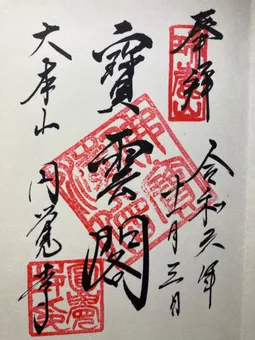 奉拝
令和六年
十一月三日
寶雲閣
大本山
円覚寺